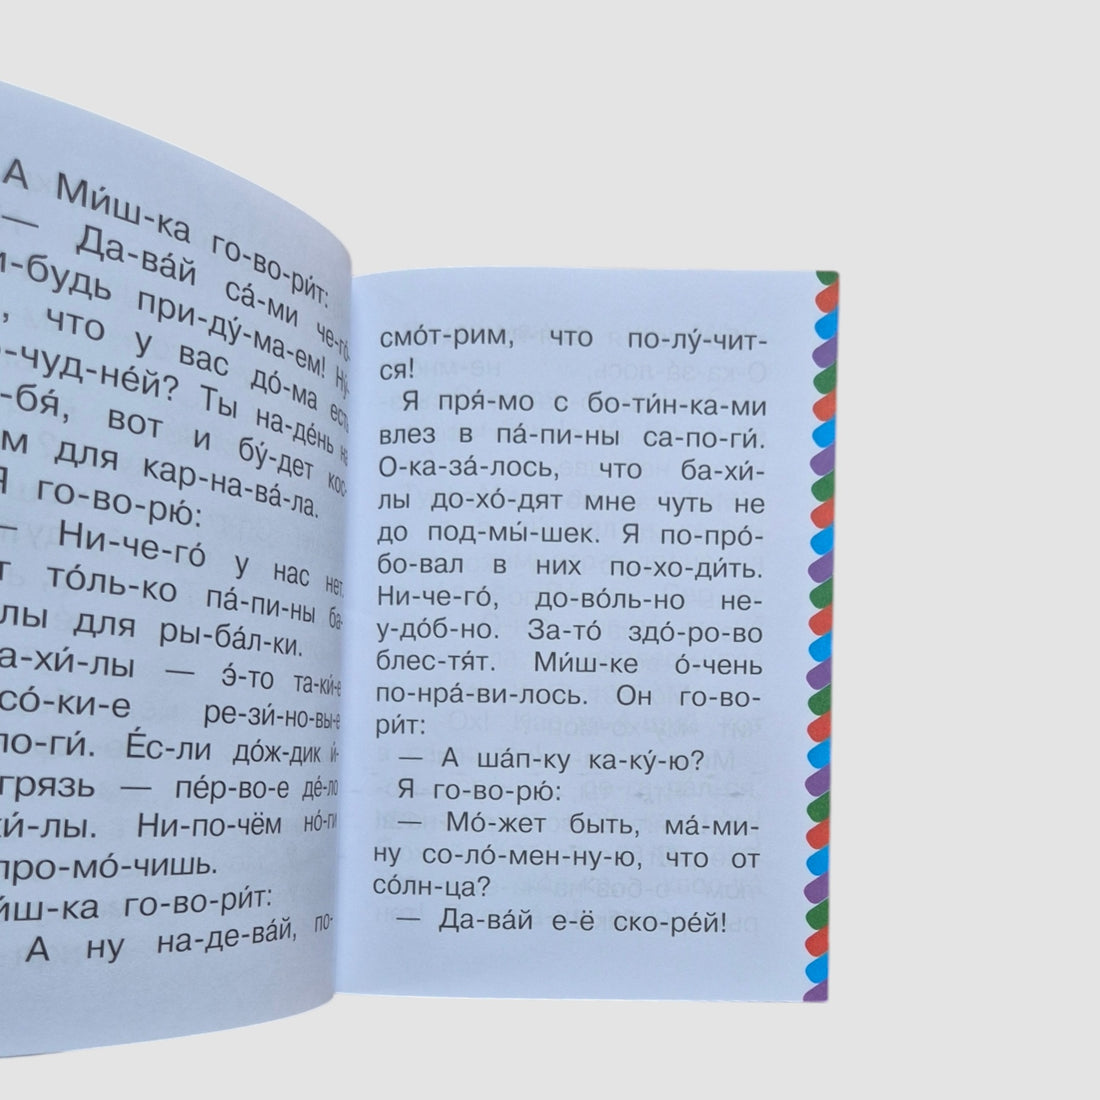 А Ми́ш-ка го-во-ри́т:
— Да-ва́й са́-ми че-го́-
и-будь при-ду́-ма-ем! Ну́-
, что у вас до́-ма есть
-чуд-не́й? Ты на-де́нь на
-бя́, вот и бу́-дет кос-
м для кар-на-ва́-ла.
Я го-во-рю́:
— Ни-че-го́ у нас нет.
т то́ль-ко па́-пи-ны ба-
лы для ры-ба́л-ки.
а-хи́-лы — э́-то та-ки́-е
со́-ки-е ре-зи́-но-вы-е
по-ги́. Е́с-ли до́ж-дик и́-
грязь — пе́р-во-е де́-ло
хи́-лы. Ни-по-чём но́-ги
про-мо́-чишь.
и́ш-ка го-во-ри́т:
А ну на-де-ва́й, по-
смо́т-рим, что по-лу́-чит-
ся!
Я пря́-мо с бо-ти́н-ка-ми
влез в па́-пи-ны са-по-ги́.
О-ка-за́-лось, что ба-хи́-
лы до-хо́-дят мне чуть не
до под-мы́-шек. Я по-про́-
бо-вал в них по-хо-ди́ть.
Ни-че-го́, до-во́ль-но не-
у-до́б-но. За-то́ здо́-ро-во
блес-тя́т. Ми́ш-ке о́-чень
по-нра́-ви-лось. Он го-во-
ри́т:
— А ша́п-ку ка-ку́-ю?
Я го-во-рю́:
— Мо́-жет быть, ма́-ми-
ну со-ло́-мен-ну-ю, что от
со́лн-ца?
— Да-ва́й е-ё ско-ре́й!